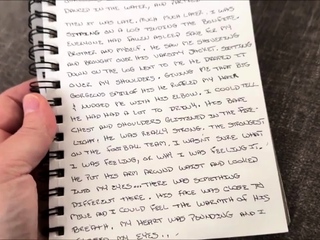 DANCED IN THE WATER, AND
THEN IT WAS LATE, MUCH MUCH LATER. I WAS
SITTING ON A LOG TENDING THE BONFIRE.
EVERYONE HAD FALLEN ASLEEP SAVE FOR MY
BROTHER AND MYSELF. HE SAW ME SHIVERING
AND BROUGHT OVER HIS VARSITY JACKET, SETTING
DOWN ON THE LOG NEXT TO ME HE DRAPED IT
OVER MY SHOULDERS. GIVING ME THAT BIG
GORGEOUS SMILE HIS HE RUBBED MY HAIR
& NUDGED ME WITH HIS ELBOW. I COULD TELL
HE HAD HAD A LOT TO DRINK. HIS BARE
CHEST AND SHOULDERS GLISTENED IN THE FIRE-
LIGHT. HE WAS REALLY STRONG. THE STRONGEST
ON THE FOOTBALL TEAM. I WASN'T SURE WHAT
I WAS FEELING, OR WHY I WAS FEELING IT..
HE PUT HIS ARM AROUND WAIST AND LOOKED
INTO MY EYES... THERE WAS SOMETHING
DIFFERENT THERE. HIS FACE WAS CLOSE TO
MINE AND I COULD FEEL THE WARMTH OF HIS
BREATH. MY HEART WAS POUNDING AND I
CLOSED MY EYES...